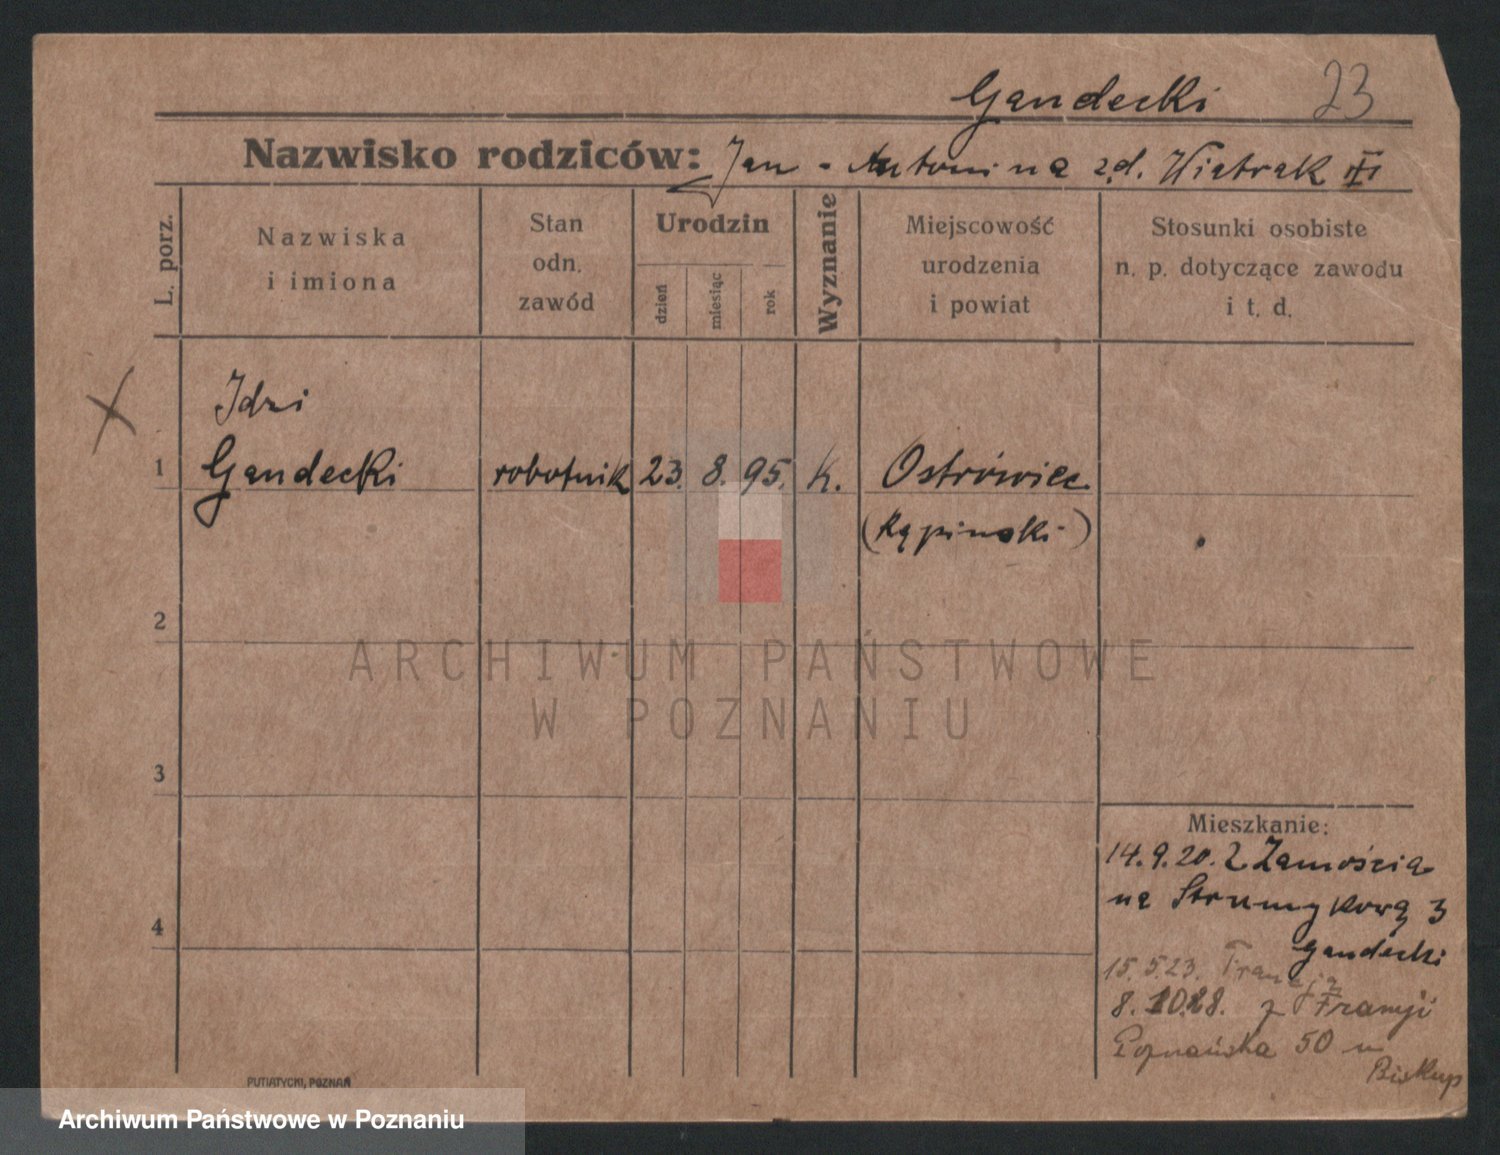 Gandecki 23
Nazwisko rodziców: Jan - Antonina zd. Wiatrak
L. porz.
Nazwiska
i imiona
Stan
odn.
zawód
Urodzin
dzień
miesiąc
rok
Wyznanie
Miejscowość
urodzenia
i powiat
Stosunki osobiste
n. p. dotyczące zawodu
i t. d.
Idzi
1 Gandecki robotnik 23. 8. 95. k. Ostrówiec
(Kąpinski)
2
ARCHIWUM PAŃSTWOWE
W POZNANIU
3
Mieszkanie:
14.9.20. Z Zamościa
na Strumykową 3
4
Gandecki
15.5.23. Francja
8. 10.28. z Francji
Poznańska 50 u
Biskup
PUTIATYCKI, POZNAŃ
Archiwum Państwowe w Poznaniu